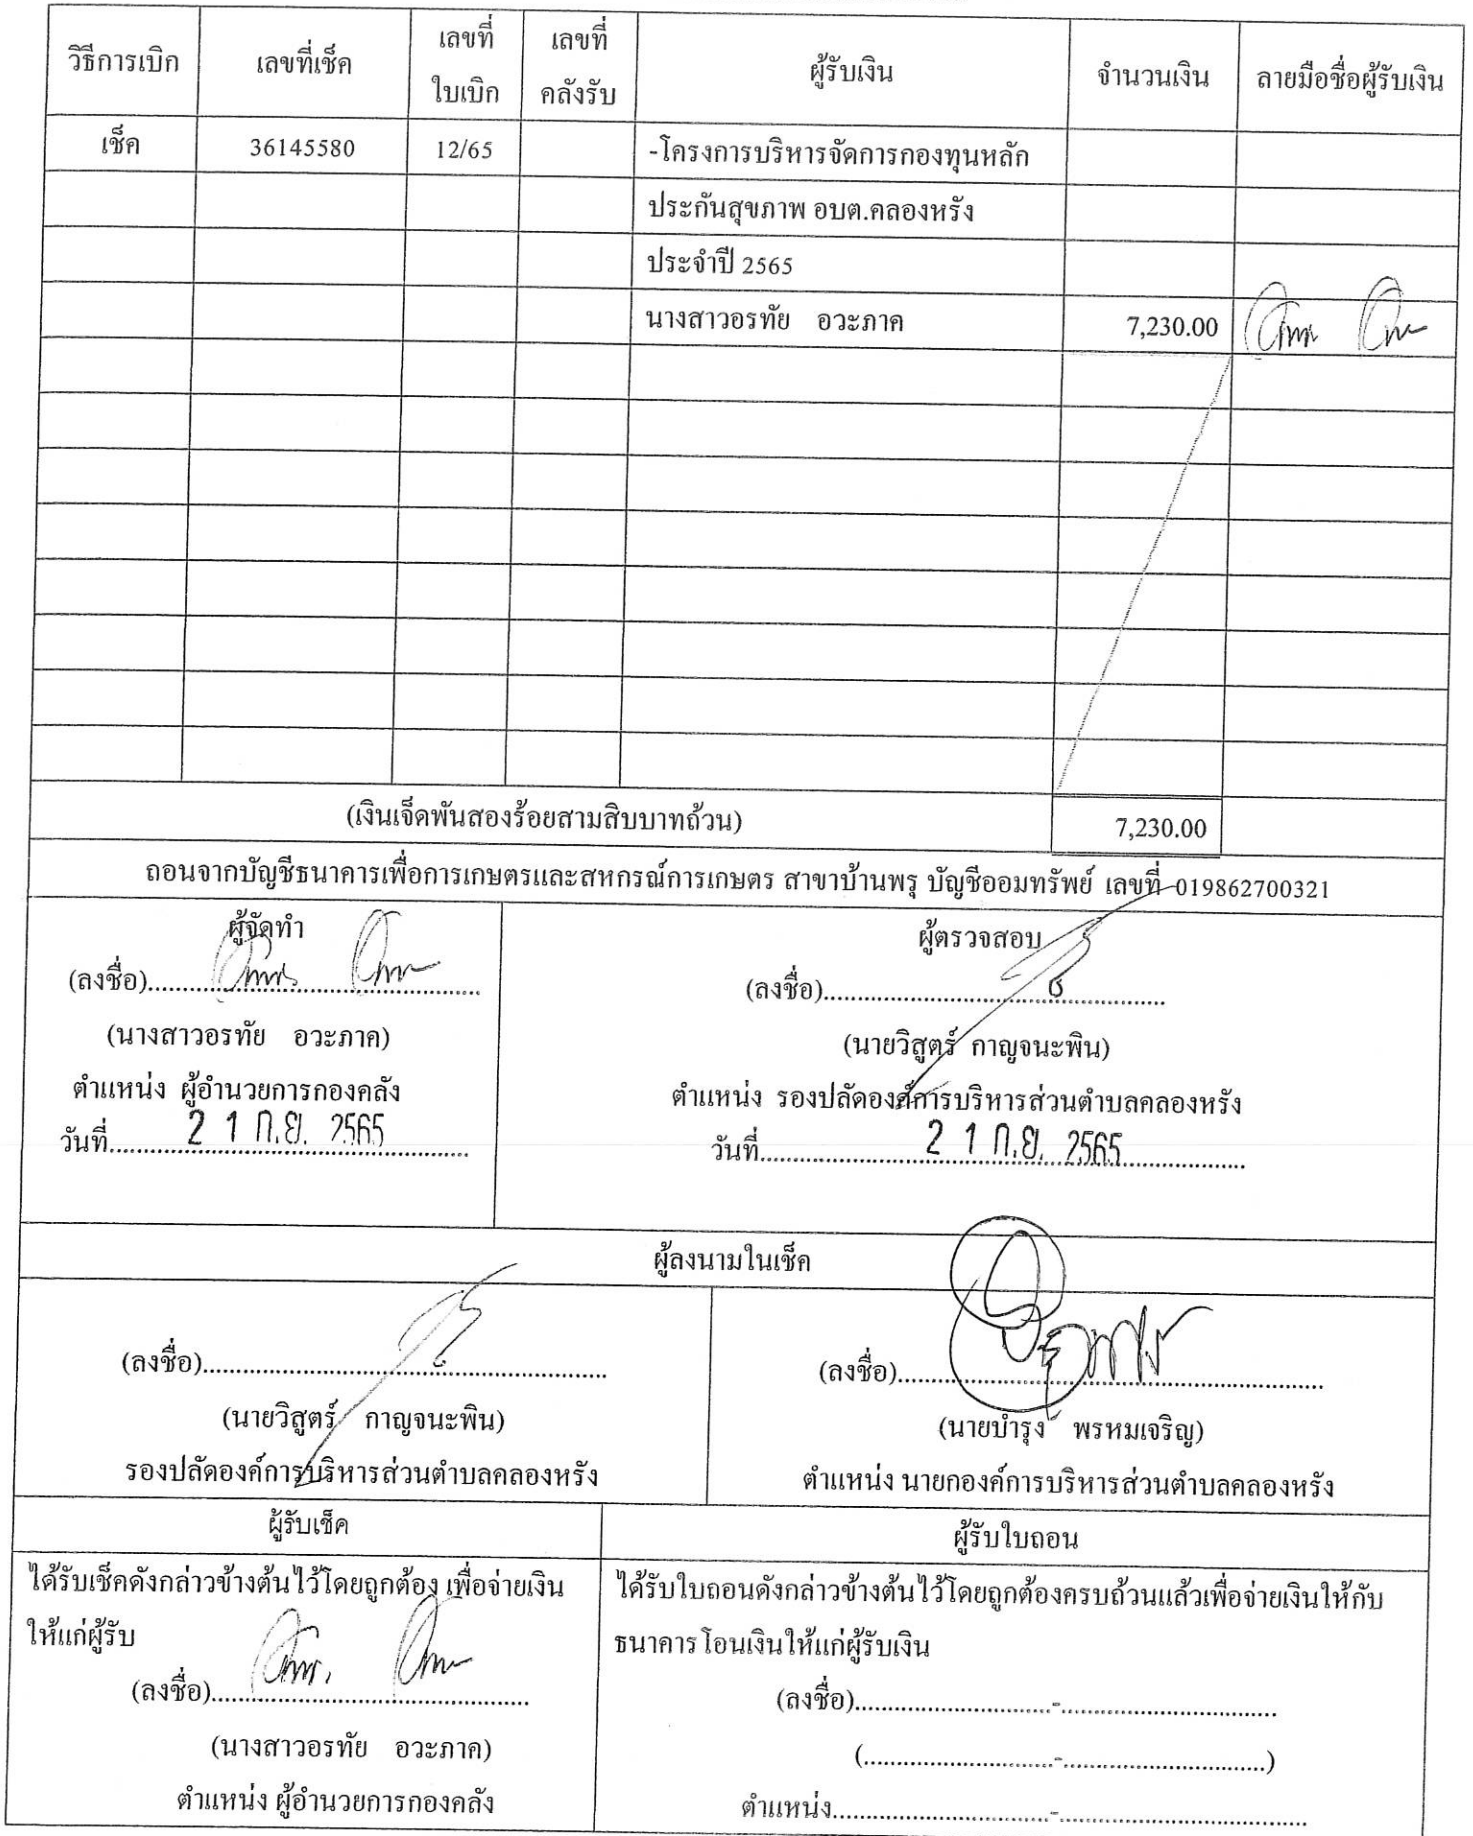 วิธีการเบิก เลขที่เช็ค เลขที่ใบเบิก เลขที่คลังรับ ผู้รับเงิน จำนวนเงิน ลายมือชื่อผู้รับเงิน
เช็ค 36145580 12/65 -โครงการบริหารจัดการกองทุนหลัก
ประกันสุขภาพ อบต.คลองหรัง
ประจำปี 2565
นางสาวอรทัย อวะภาค 7,230.00
(เงินเจ็ดพันสองร้อยสามสิบบาทถ้วน) 7,230.00
ถอนจากบัญชีธนาคารเพื่อการเกษตรและสหกรณ์การเกษตร สาขาบ้านพรุ บัญชีออมทรัพย์ เลขที่ 019862700321
ผู้จัดทำ
(ลงชื่อ)
(นางสาวอรทัย อวะภาค)
ตำแหน่ง ผู้อำนวยการกองคลัง
วันที่ 21 ก.ย. 2565
ผู้ตรวจสอบ
(ลงชื่อ)
(นายวิสูตร์ กาญจนะพิน)
ตำแหน่ง รองปลัดองค์การบริหารส่วนตำบลคลองหรัง
วันที่ 21 ก.ย. 2565
ผู้ลงนามในเช็ค
(ลงชื่อ)
(นายวิสูตร์ กาญจนะพิน)
รองปลัดองค์การบริหารส่วนตำบลคลองหรัง
(ลงชื่อ)
(นายบำรุง พรหมเจริญ)
ตำแหน่ง นายกองค์การบริหารส่วนตำบลคลองหรัง
ผู้รับเช็ค
ได้รับเช็คดังกล่าวข้างต้นไว้โดยถูกต้อง เพื่อจ่ายเงิน
ให้แก่ผู้รับ
(ลงชื่อ)
(นางสาวอรทัย อวะภาค)
ตำแหน่ง ผู้อำนวยการกองคลัง
ผู้รับใบถอน
ได้รับใบถอนดังกล่าวข้างต้นไว้โดยถูกต้องครบถ้วนแล้วเพื่อจ่ายเงินให้กับ
ธนาคารโอนเงินให้แก่ผู้รับเงิน
(ลงชื่อ)..............-..............
(..............-..............)
ตำแหน่ง..............-..............